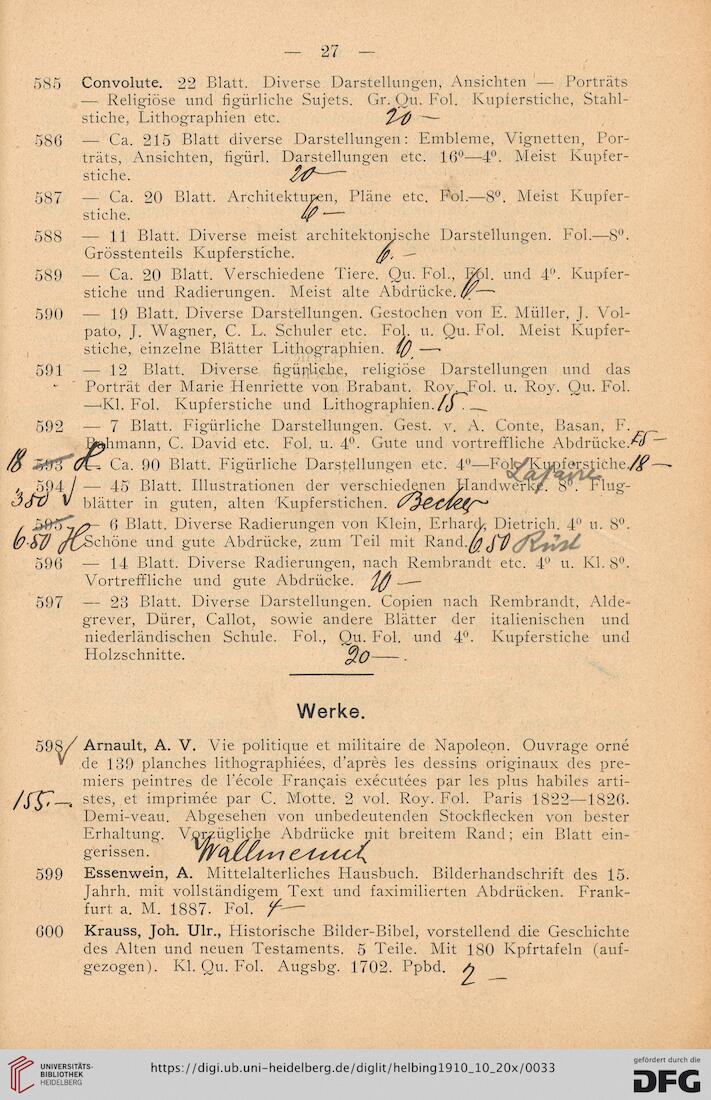 — 27 —
585 Convolute. 22 Blatt. Diverse Darstellungen, Ansichten — Porträts
— Religiöse und figürliche Sujets. Gr. Qu. Fol. Kupferstiche, Stahl-
stiche, Lithographien etc. 20 —
586 — Ca. 215 Blatt diverse Darstellungen: Embleme, Vignetten, Por-
träts, Ansichten, figürl. Darstellungen etc. 16⁰—4⁰. Meist Kupfer-
stiche. 20 —
587 — Ca. 20 Blatt. Architekturen, Pläne etc. Fol.—8⁰. Meist Kupfer-
stiche. 6 —
588 — 11 Blatt. Diverse meist architektonische Darstellungen. Fol.—8⁰.
Grösstenteils Kupferstiche. 6. —
589 — Ca. 20 Blatt. Verschiedene Tiere. Qu. Fol., Fol. und 4⁰. Kupfer-
stiche und Radierungen. Meist alte Abdrücke. 6 —
590 — 19 Blatt. Diverse Darstellungen. Gestochen von E. Müller, J. Vol-
pato, J. Wagner, C. L. Schuler etc. Fol. u. Qu. Fol. Meist Kupfer-
stiche, einzelne Blätter Lithographien. 10. —
591 — 12 Blatt. Diverse figürliche, religiöse Darstellungen und das
Porträt der Marie Henriette von Brabant. Roy. Fol. u. Roy. Qu. Fol.
—Kl. Fol. Kupferstiche und Lithographien. 15. —
592 — 7 Blatt. Figürliche Darstellungen. Gest. v. A. Conte, Basan, F.
Bohmann, C. David etc. Fol. u. 4⁰. Gute und vortreffliche Abdrücke. 15 —
18 593 H. Ca. 90 Blatt. Figürliche Darstellungen etc. 4⁰—Fol. Kupferstiche. 18 —
594 — 45 Blatt. Illustrationen der verschiedenen Handwerke. 8⁰. Flug-
3.50 blätter in guten, alten Kupferstichen. Becker
595 — 6 Blatt. Diverse Radierungen von Klein, Erhard, Dietrich. 4⁰ u. 8⁰.
6.50 H Schöne und gute Abdrücke, zum Teil mit Rand. 6 50
596 — 14 Blatt. Diverse Radierungen, nach Rembrandt etc. 4⁰ u. Kl. 8⁰.
Vortreffliche und gute Abdrücke. 10 —
597 — 23 Blatt. Diverse Darstellungen. Copien nach Rembrandt, Alde-
grever, Dürer, Callot, sowie andere Blätter der italienischen und
niederländischen Schule. Fol., Qu. Fol. und 4⁰. Kupferstiche und
Holzschnitte. 20 —.
Werke.
598 Arnault, A. V. Vie politique et militaire de Napoleon. Ouvrage orné
de 139 planches lithographiées, d'après les dessins originaux des pre-
miers peintres de l'école Français exécutées par les plus habiles arti-
155. — stes, et imprimée par C. Motte. 2 vol. Roy. Fol. Paris 1822—1826.
Demi-veau. Abgesehen von unbedeutenden Stockflecken von bester
Erhaltung. Vorzügliche Abdrücke mit breitem Rand; ein Blatt ein-
gerissen.
599 Essenwein, A. Mittelalterliches Hausbuch. Bilderhandschrift des 15.
Jahrh. mit vollständigem Text und faximilierten Abdrücken. Frank-
furt a. M. 1887. Fol. 4 —
600 Krauss, Joh. Ulr., Historische Bilder-Bibel, vorstellend die Geschichte
des Alten und neuen Testaments. 5 Teile. Mit 180 Kpfrtafeln (auf-
gezogen). Kl. Qu. Fol. Augsbg. 1702. Ppbd. 2 —
UNIVERSITÄTS-
BIBLIOTHEK
HEIDELBERG
https://digi.ub.uni-heidelberg.de/diglit/helbing1910_10_20x/0033
gefördert durch die
DFG